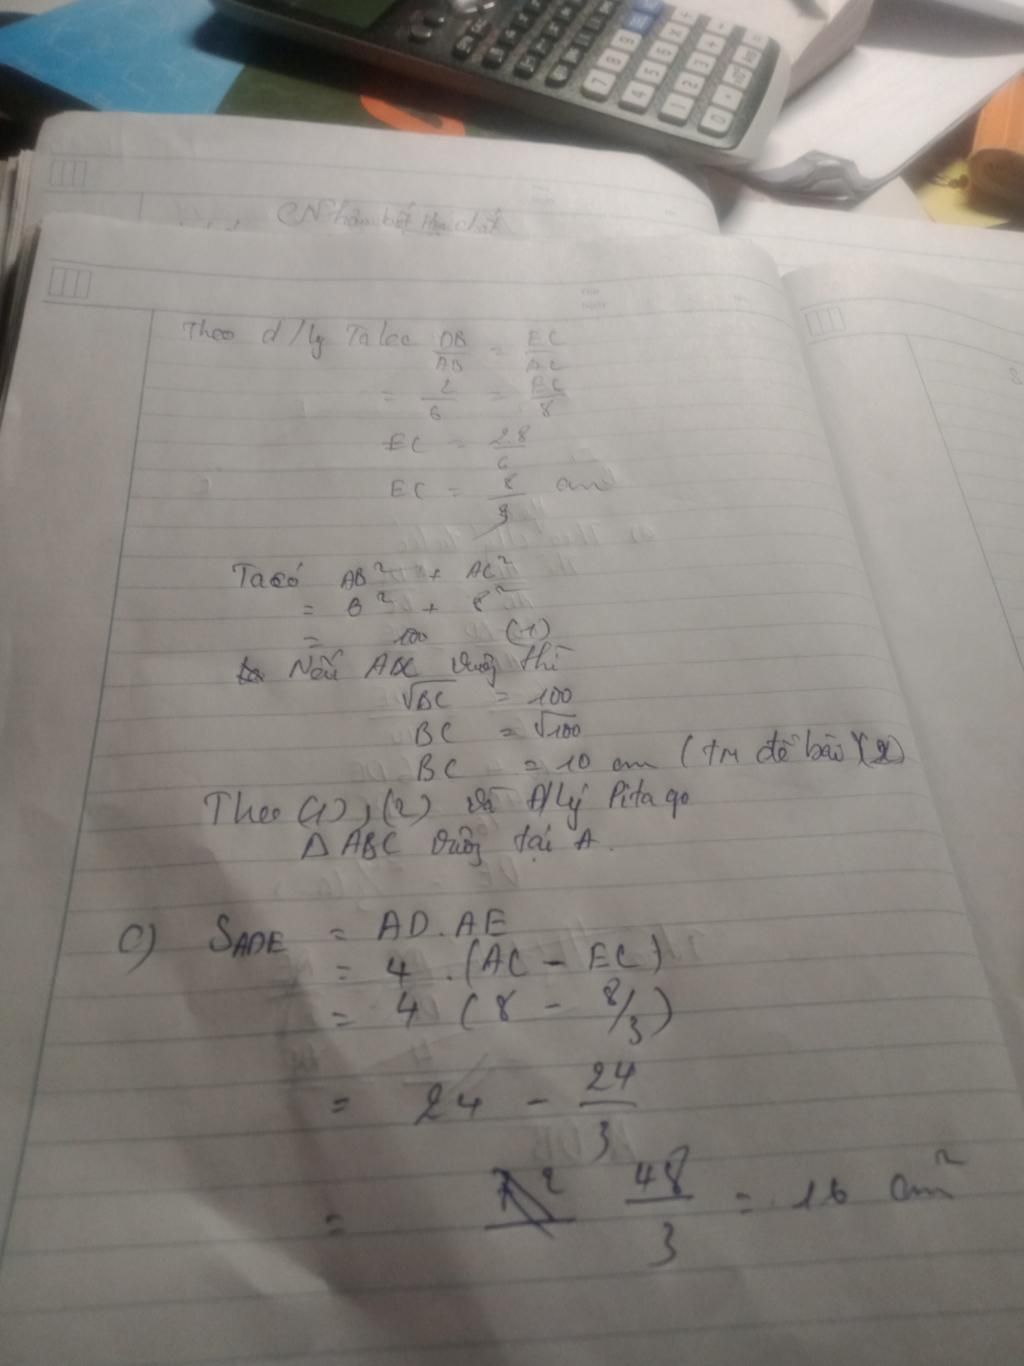 Theo đ/lý Talec DB/AB = EC/AC
= 2/6 = EC/8
EC = 2.8/6
EC = 8/3 cm
Ta có AB² + AC²
= 6² + 8²
= 100 (1)
Nếu ABC vuông thì
√BC = 100
BC = √100
BC = 10 cm (TM đề bài) (2)
Theo (1), (2) và đ/lý Pitago
Δ ABC vuông tại A.
C) SADE = AD.AE
= 4 . (AC - EC)
= 4 (8 - 8/3)
= 24 - 24/3
= 48/3 = 16 cm²